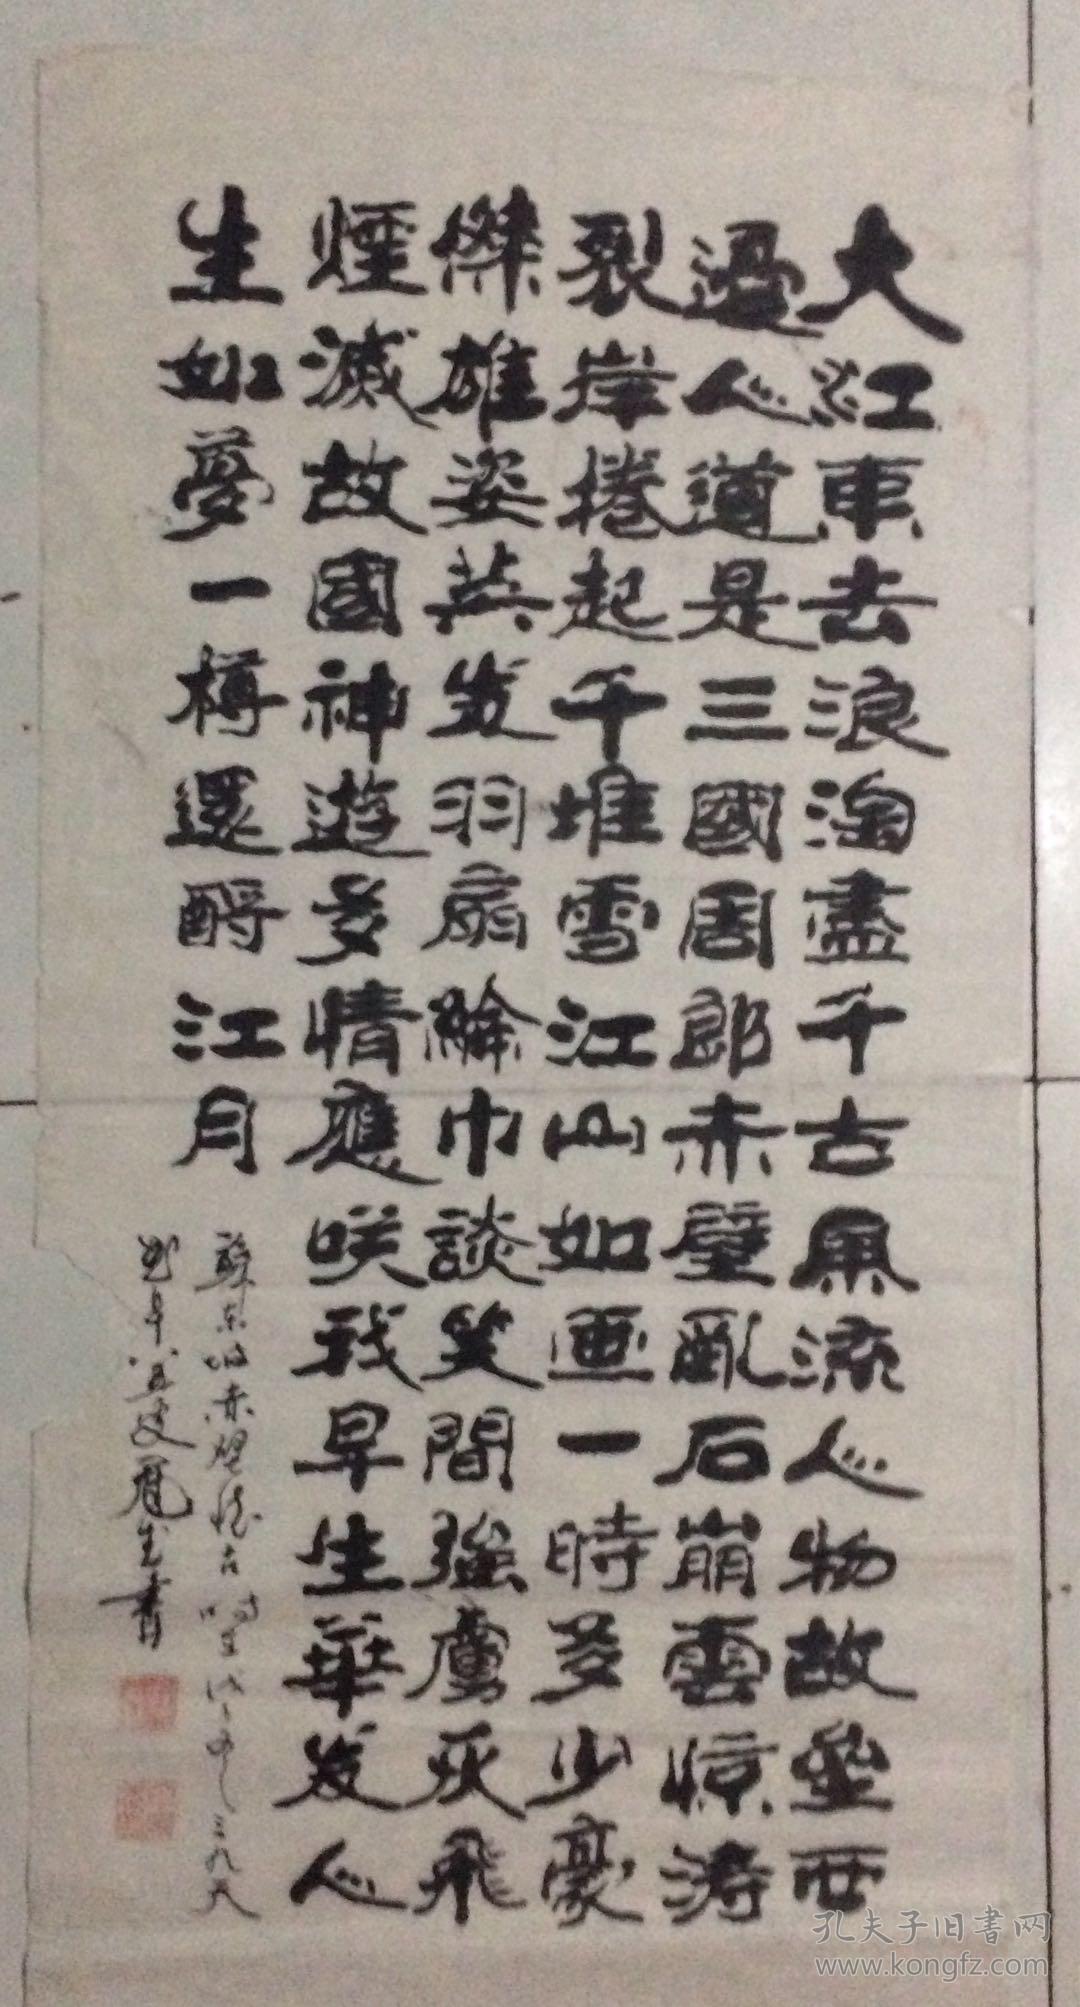 大江東去浪淘盡千古風流人物故壘西
邊人道是三國周郎赤壁亂石崩雲惊涛
裂岸捲起千堆雪江山如画一時多少豪
傑雄姿英发羽扇綸巾談笑間強虜灰飛
煙滅故國神遊多情應咲我早生華发人
生如夢一樽還酹江月
蘇東坡赤壁懷古時三九天
年八五叟生書
孔夫子旧書网
www.kongfz.com